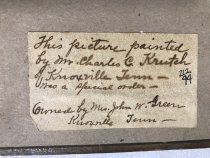 This picture painted
by Mr. Charles C. Krutch
of Knoxville Tenn —
was a special order —
Owned by Mrs. John W. Green
Knoxville Tenn —